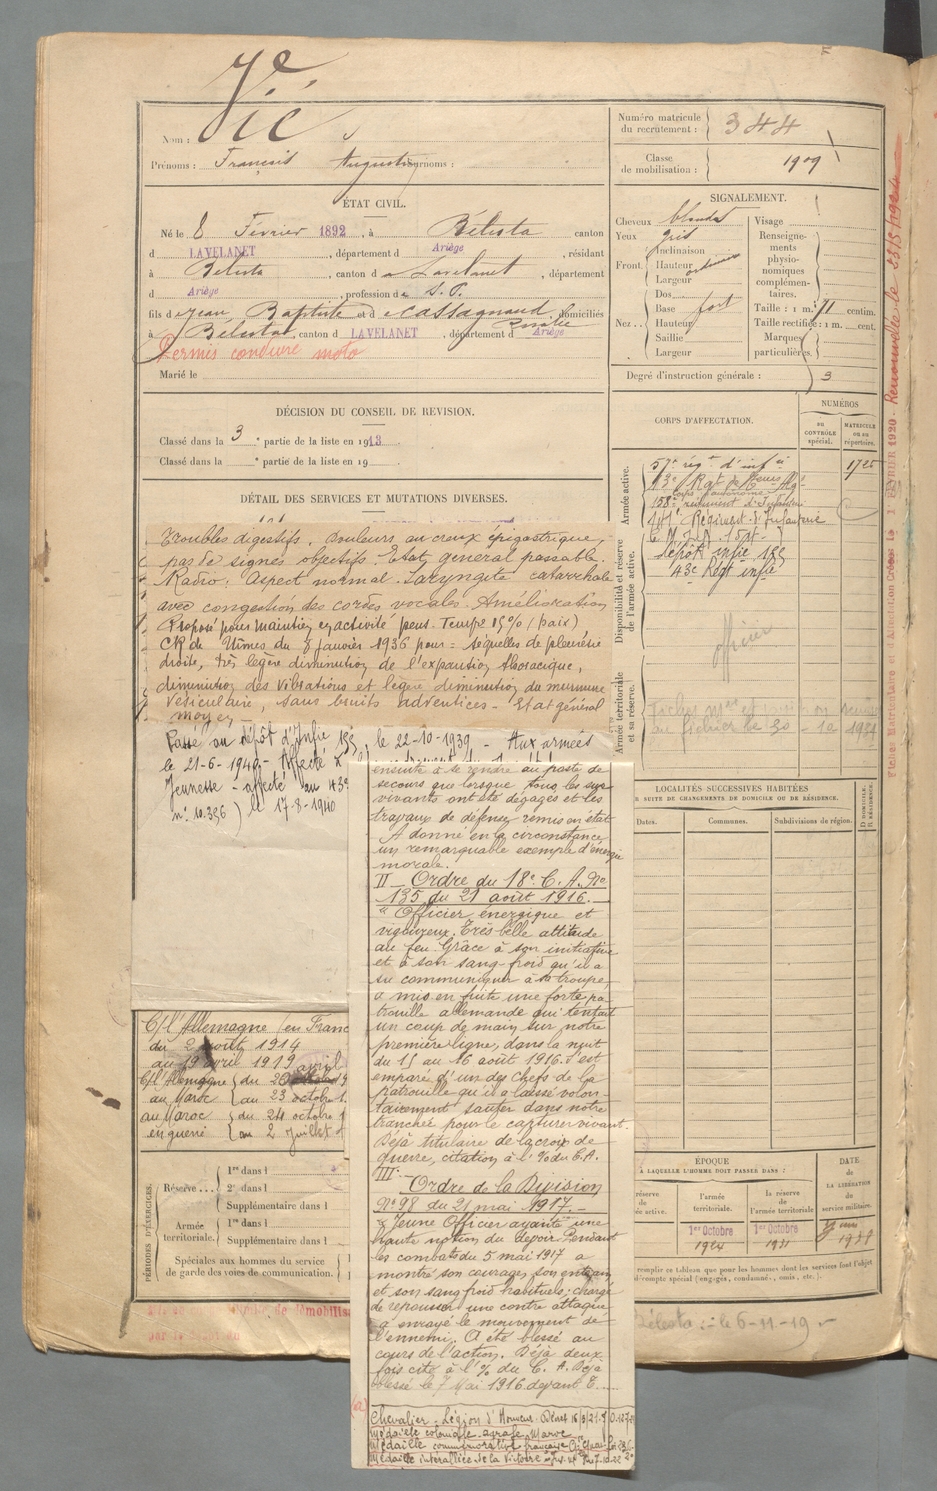 Nom : Vié
Prénoms : François Augustin Surnoms :
ÉTAT CIVIL.
Né le 8 Février 1892, à Bélesta canton
d LAVELANET, département d Ariège, résidant
à Bélesta, canton d e Lavelanet, département
d Ariège, profession d e S. P.
fils d e Jean Baptiste et d e Cassagnaud Rosalie, domiciliés
à Bélesta, canton d LAVELANET, département d Ariège
Permis conduire moto
Marié le
DÉCISION DU CONSEIL DE REVISION.
Classé dans la 3 e partie de la liste en 1913
Classé dans la e partie de la liste en 19
DÉTAIL DES SERVICES ET MUTATIONS DIVERSES.
Troubles digestifs. Douleurs au creux épigastrique,
pas de signes objectifs. Etat général passable.
Radio : Aspect normal. Laryngite catarrhale
avec congestion des cordes vocales. Amélioration
Proposé pour maintien en activité pens. Temp. 15% (paix)
CR de Nîmes du 8 janvier 1936 pour = séquelles de pleurésie
droite, très légère diminution de l'expansion thoracique,
diminution des vibrations et légère diminution du murmure
vésiculaire, sans bruits adventices - Etat général
moyen -
Passé au dépôt d'Infie 155, le 22-10-1939 - Aux armées
le 21-6-1940 - Affecté
Jeunesse - affecté au 43e
n° 10.356) le 17-8-1940
C/ l'Allemagne (en Franc
du 2 août 1914
au 19 avril 1919
C/ l'Allemagne du 20 avril 19
au Maroc au 23 octobre 1
au Maroc du 24 octobre 1
en guerre au 2 juillet
PÉRIODES D'EXERCICES.
Réserve... 1re dans l
2e dans l
Supplémentaire dans l
Armée territoriale. 1re dans l
Supplémentaire dans l
Spéciales aux hommes du service
de garde des voies de communication.
ensuite à se rendre au poste de
secours que lorsque tous les sur
vivants ont été dégagés et les
travaux de défense remis en état
A donné en la circonstance
un remarquable exemple d'énergie
morale.
II - Ordre du 18e C. A. No
135 du 21 août 1916. -
" Officier énergique et
vigoureux. Très belle attitude
au feu. Grâce à son initiative
et à son sang-froid qu'il a
su communiquer à sa troupe,
a mis en fuite une forte pa
trouille allemande qui tentait
un coup de main sur notre
première ligne, dans la nuit
du 15 au 16 août 1916. S'est
emparé d'un des chefs de la
patrouille qu'il a laissé volon-
tairement sauter dans notre
tranchée pour le capturer vivant.
Déjà titulaire de la croix de
guerre, citation à l'% du C.A.
III.
Ordre de la Division
No 98 du 21 mai 1917. -
" Jeune Officier ayant une
haute notion du devoir. Pendant
les combats du 5 mai 1917 a
montré son courage, son entrain
et son sang froid habituels ; chargé
de repousser une contre attaque
a enrayé le mouvement de
l'ennemi. A été blessé au
cours de l'action. Déjà deux
fois cité à l'% du C. A. Déjà
blessé le 7 Mai 1916 devant
Chevalier Légion d'Honneur. Décret 16/3/21
Médaille coloniale agrafe Maroc
Médaille commémorative française
Médaille interalliée de la Victoire
Numéro matricule
du recrutement : 344
Classe
de mobilisation : 1909
SIGNALEMENT.
Cheveux blonds
Yeux gris
Front. Inclinaison
Hauteur ordinaire
Largeur
Nez.. Dos
Base fort
Hauteur
Saillie
Largeur
Visage
Renseigne-
ments
physio-
nomiques
complémen-
taires.
Taille : 1 m. 71 centim.
Taille rectifiée : 1 m. cent.
Marques
particulières.
Degré d'instruction générale : 3
CORPS D'AFFECTATION.
NUMÉROS
DU CONTRÔLE spécial.
MATRICULE ou au répertoire.
Armée active.
57e régt d'infie 1725
158e régiment d'Infanterie
141e Régiment d'Infanterie
Disponibilité et réserve
de l'armée active.
dépôt infie 155
43e Régt infie
officier
Armée territoriale
et sa réserve.
au fichier le 30 - 12 1931
LOCALITÉS SUCCESSIVES HABITÉES
SUITE DE CHANGEMENTS DE DOMICILE OU DE RÉSIDENCE.
Dates. Communes. Subdivisions de région. D DOMICILE. R RÉSIDENCE.
ÉPOQUE
À LAQUELLE L'HOMME DOIT PASSER DANS :
l'armée
territoriale.
la réserve
de l'armée territoriale
DATE
de
LA LIBÉRATION
du
service militaire.
1er Octobre 1924
1er Octobre 1931
1938
remplir ce tableau que pour les hommes dont les services font l'objet
d'un compte spécial (engagés, condamnés, omis, etc.).
Bélesta : le 6-11-19
Fiches Matriculaire et d'Affectation Créées le 1 FÉVRIER 1920 - Renouvelle le 23/5/1924